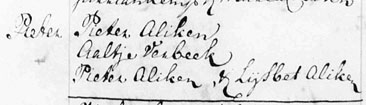 Pieter Pieter Aliken
Aaltje Verbeek
Pieter Aliken & Lijsbet Aliken